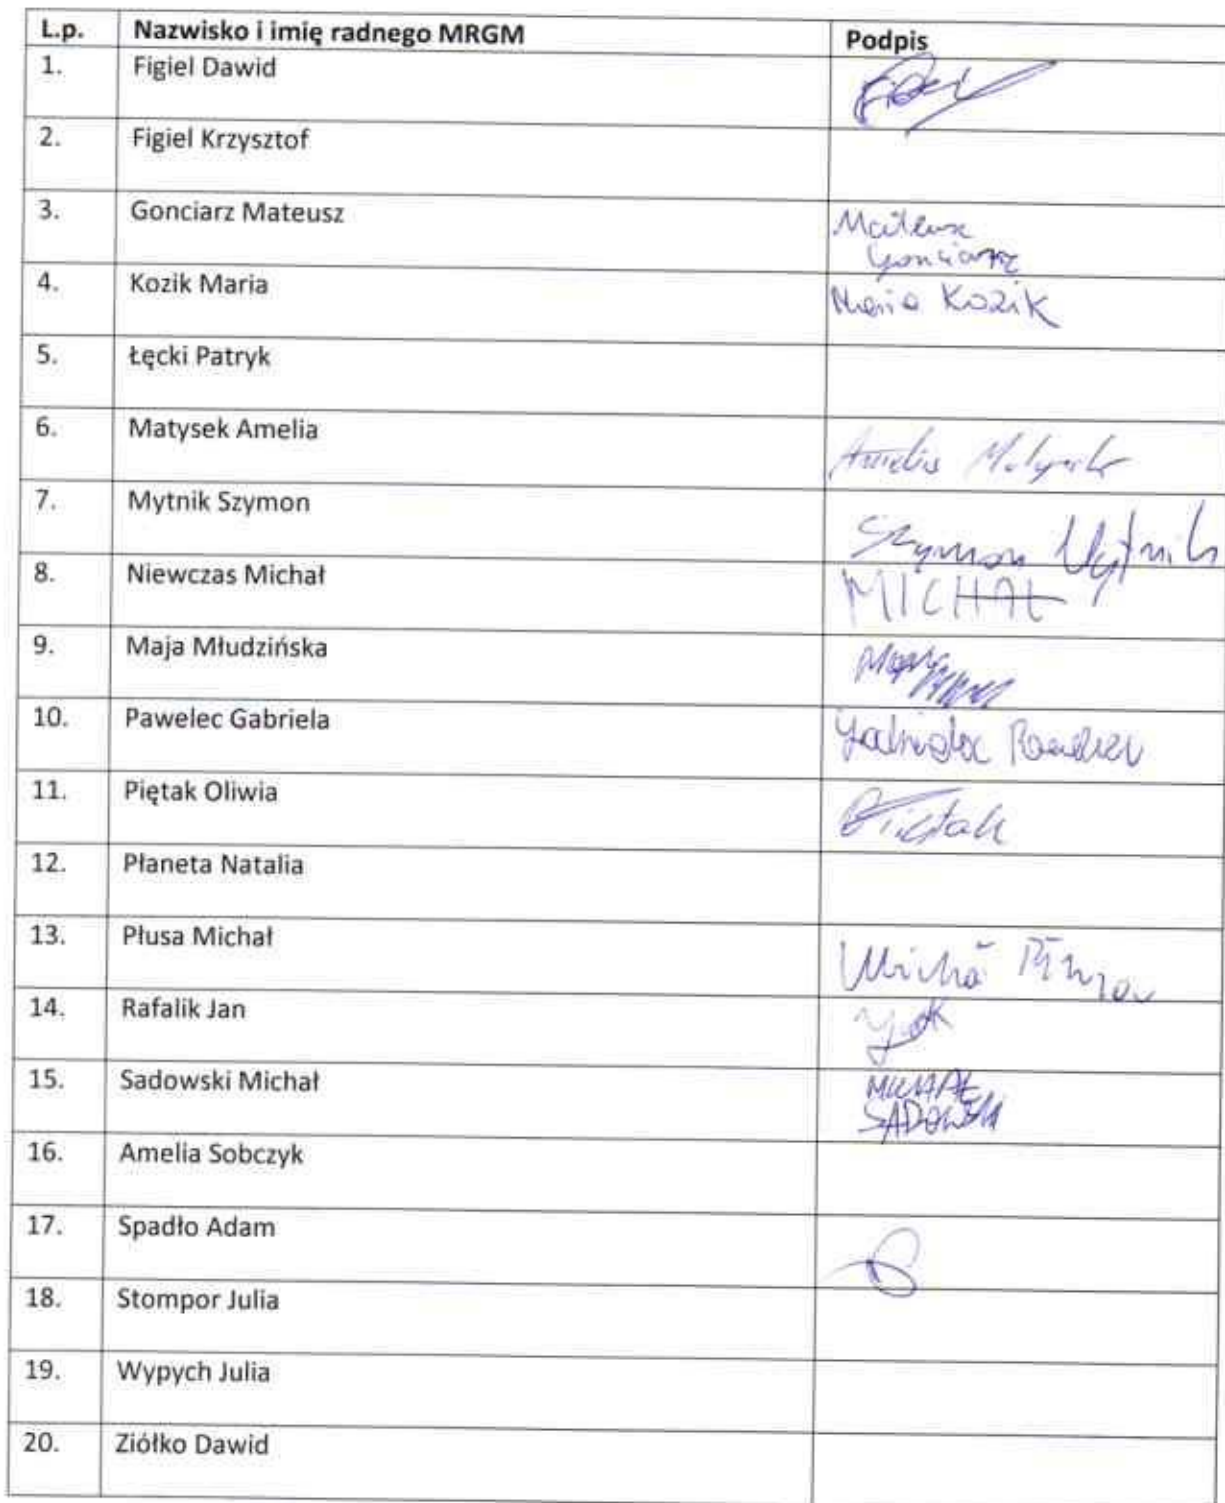 L.p. Nazwisko i imię radnego MRGM Podpis
1. Figiel Dawid
2. Figiel Krzysztof
3. Gonciarz Mateusz Mateusz
Gonciarz
4. Kozik Maria Maria Kozik
5. Łęcki Patryk
6. Matysek Amelia Amelia Matysek
7. Mytnik Szymon Szymon Mytnik
8. Niewczas Michał MICHAŁ
9. Maja Młudzińska
10. Pawelec Gabriela
11. Piętak Oliwia Piętak
12. Płaneta Natalia
13. Płusa Michał
14. Rafalik Jan
15. Sadowski Michał MICHAŁ
SADOWSKI
16. Amelia Sobczyk
17. Spadło Adam
18. Stompor Julia
19. Wypych Julia
20. Ziółko Dawid